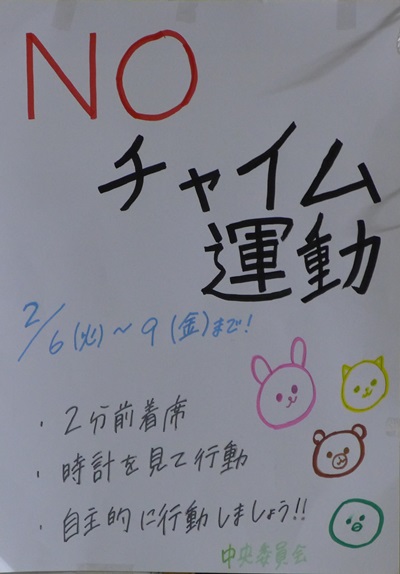 NO
チャイム
運動
2/6(火)～9(金)まで!
・2分前着席
・時計を見て行動
・自主的に行動しましょう!!
中央委員会